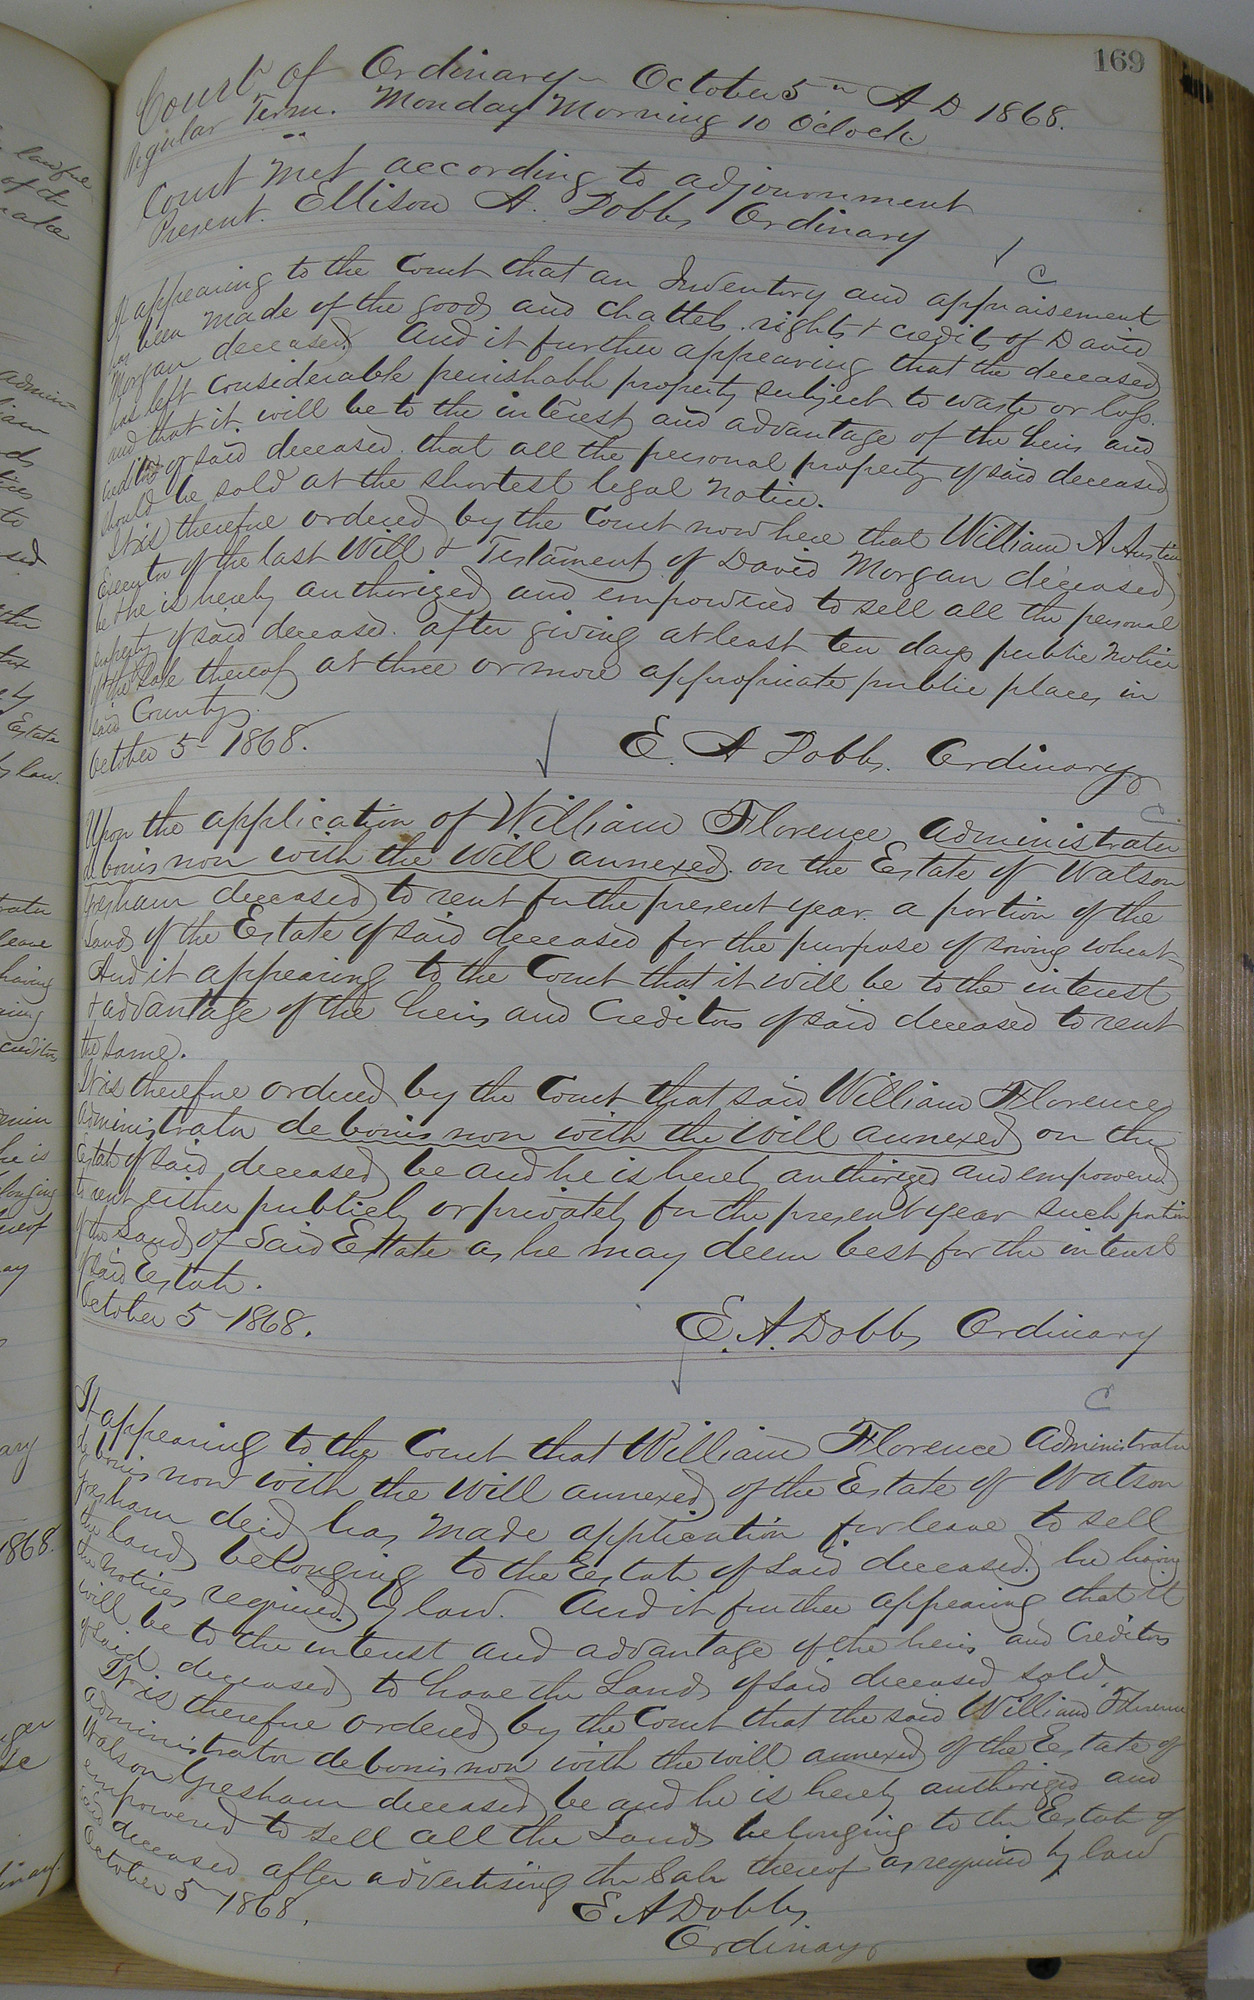 169
Court of Ordinary October 5th A D 1868.
Regular Term. Monday Morning 10 O'clock
Court met according to adjournment
Present. Ellison A. Dobbs Ordinary
It appearing to the Court that an Inventory and appraisement
has been made of the goods and chattels rights & credits of David
Morgan deceased And it further appearing that the deceased
has left considerable perishable property subject to waste or loss.
and that it will be to the interest and advantage of the heirs and
of said deceased that all the personal property of said deceased
should be sold at the shortest legal notice.
It is therefore ordered by the Court now here that William A Austin
Executor of the last Will & Testament of David Morgan deceased
be & he is hereby authorized and empowered to sell all the personal
property of said deceased. after giving at least ten days public notice
of the Sale thereof at three or more appropriate public places in
said County.
October 5 1868.
E. A Dobbs. Ordinary
Upon the application of William Florence Administrator
de bonis non with the Will annexed. on the Estate of Watson
Gresham deceased to rent for the present year. a portion of the
Lands of the Estate of said deceased for the purpose of sowing wheat
And it appearing to the Court that it will be to the interest
& advantage of the heirs and Creditors of said deceased to rent
the same.
It is therefore ordered by the Court that said William Florence
Administrator de bonis non with the Will annexed on the
Estate of said deceased be and he is hereby authorized and empowered
to rent either publicly or privately for the present year such portion
of the Lands of Said Estate as he may deem best for the interest
of said Estate.
October 5 1868.
E. A. Dobbs Ordinary
It appearing to the Court that William Florence Administrator
de bonis non with the Will annexed of the Estate of Watson
Gresham decd has made application for leave to sell
the lands belonging to the Estate of said deceased. he having
the notices required by law. And it further appearing that it
will be to the interest and advantage of the heirs and Creditors
of said deceased to have the Lands of said deceased sold.
It is therefore ordered by the Court that the said William Florence
Administrator de bonis non with the will annexed of the Estate of
Watson Gresham deceased be and he is hereby authorized and
empowered to sell all the Lands belonging to the Estate of
said deceased after advertising the Sale thereof as required by law
October 5 1868.
E A Dobbs
Ordinary